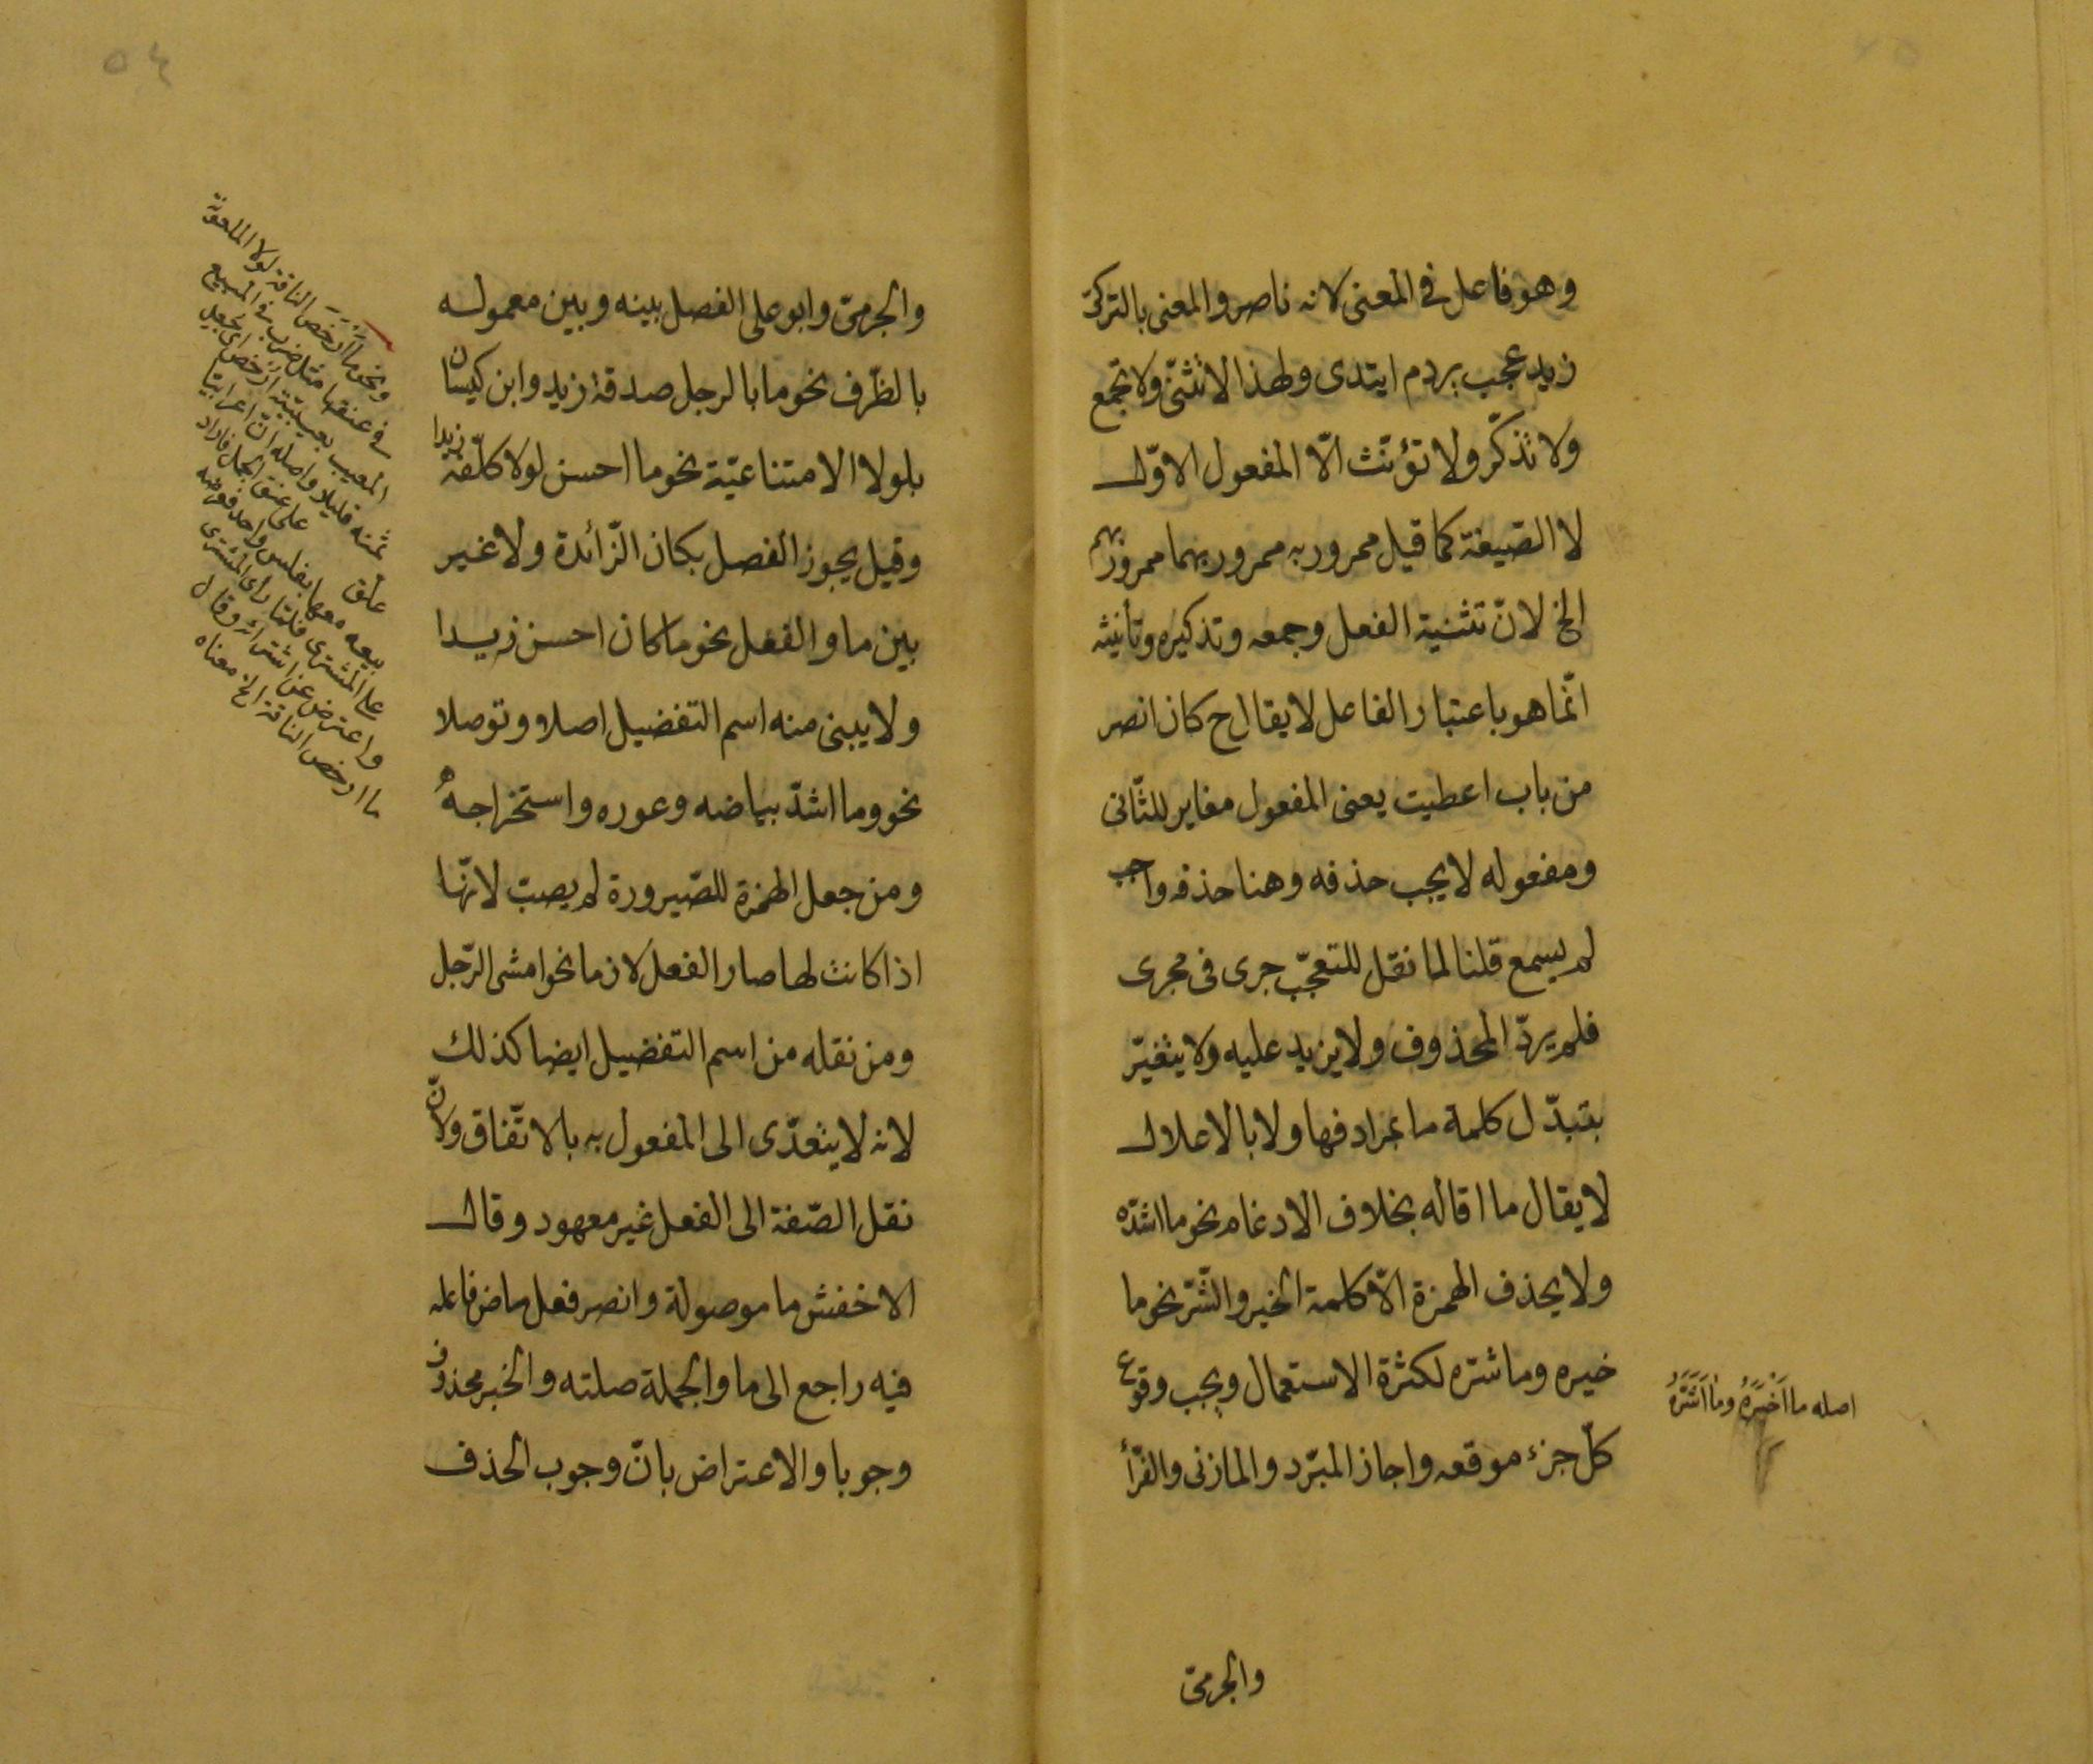 وهو فاعل في المعنى لانه ناصر والمعنى بالتركى
زيد عجب يردم ايتدى ولهذا لا تثنّى ولا تجمع
ولا تذكّر ولا تؤنّث الّا المفعول الاوّل
لا الصّيغة كما قيل ممرور به ممرور بهما ممرور بهم
الخ لانّ تثنية الفعل وجمعه وتذكيره وتأنيثه
انّما هو باعتبار الفاعل لا يقال ح كان انصر
من باب اعطيت يعنى المفعول مغاير للثّانى
ومفعوله لا يجب حذفه وهنا حذفه واجب
لم يسمع قلنا لما نقل للتعجّب جرى فى مجرى
فلم يردّ المحذوف ولا يزيد عليه ولا يتغيّر
بتبدّل كلمة ما بمرادفها ولا بالاعلال
لا يقال ما اقاله بخلاف الادغام نحو ما اشدّه
ولا يحذف الهمزة الّا كلمة الخير والشّرّ نحو ما
خيره وما شرّه لكثرة الاستعمال ويجب وقوع
كلّ جزء موقعه واجاز المبرّد والمازنى والفرّأ
اصله ما اَخْيَرَهُ وما اَشَرَّهُ
والجرمىّ
٥٤
والجرمىّ وابو على الفصل بينه وبين معموله
بالظّرف نحو ما بالرجل صدقه ازيد وابن كيسان
بلولا الامتناعيّة نحو ما احسن لولا كلّفه زيدا
وقيل يجوز الفصل بكان الزّائدة ولا غير
بين ما والفعل نحو ما كان احسن زيدا
ولا يبنى منه اسم التفضيل اصلا وتوصلا
نحو وما اشدّ بياضه وعوره واستخراجهُ
ومن جعل الهمزة للصّيرورة لم يصب لانّها
اذا كانت لها صار الفعل لازما نحو امشى الرّجل
ومن نقله من اسم التفضيل ايضا كذلك
لانه لا يتعدّى الى المفعول به بالاتّفاق ولانّ
نقل الصّفة الى الفعل غير معهود وقال
الاخفش ما موصولة وانصر فعل ماض فاعله
فيه راجع الى ما والجملة صلته والخبر محذوف
وجوبا والاعتراض بانّ وجوب الحذف
ونحو ما اَرْخَصَ الناقة لولا الملعونة
فى عنقها مثل ضرب فى المبيع
المعيب بعيبيّة ارخص اى جعل
ثمنه قليلا واصله انّ اعرابيّا
علّق على عنق الجمل فاراد
بيعه معها بفلس واحد فعرضه
على المشترى فلمّا رأى المشترى
واعترض عن اشترائه وقال
ما ارخص الناقة الخ معناه